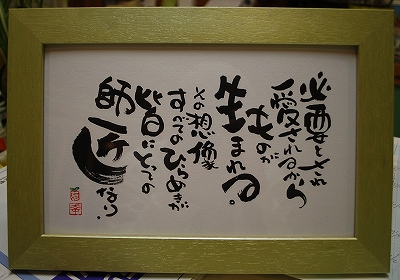 必要とされ
愛されるから
ものが
生まれる。
その想像
すべてのひらめきが
皆にとっての
師匠なり。